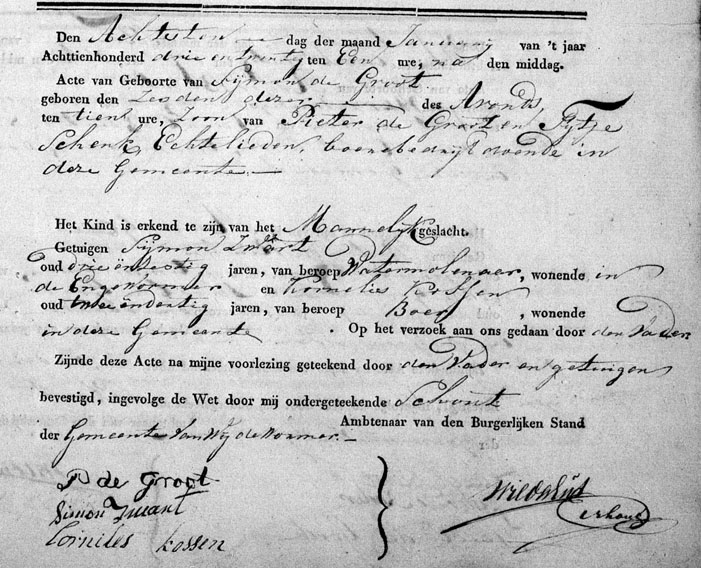 Den Achtsten dag der maand January van 't jaar
Achttienhonderd drie en twentig ten Een ure, na den middag.
Acte van Geboorte van Sijmon de Groot
geboren den Zesden dezer des Avonds
ten tien ure, Zoon van Pieter de Groot en Sijtje
Schenk Echtelieden, boerebedrijf doende in
deze Gemeente.
Het Kind is erkend te zijn van het Mannelijk geslacht.
Getuigen Sijmon Zwart
oud drie en jaren, van beroep Watermolenaar, wonende in
de Engewormer en Kornelies Kossen
oud twee ëndertig jaren, van beroep Boer, wonende
in deze Gemeente. Op het verzoek aan ons gedaan door den Vader.
Zijnde deze Acte na mijne voorlezing geteekend door den Vader en getuigen
bevestigd, ingevolge de Wet door mij ondergeteekende Schout
Ambtenaar van den Burgerlijken Stand
der Gemeente Van Wijdewormer.
P de Groot
Simon Zwart
Corniles Kossen